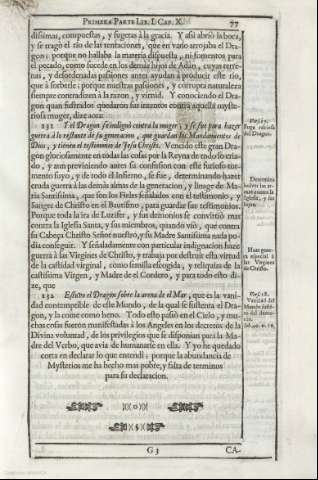 PRIMERA PARTE LIB. I. CAP. X. 77
dissimas, compuestas, y sugetas à la gracia. Y assi abriò la boca,
y se tragò el rio de las tentaciones, que en vano arrojaba el Dra-
gon; porque no hallaba la materia dispuesta, ni fomentos para
el pecado, como sucede en los demàs hijos de Adàn, cuyas terre-
nas, y desordenadas passiones antes ayudan à producir este rio,
que à sorberle; porque nuestras passiones, y corrupta naturaleza
siempre contradizen à la razon, y virtud. Y conociendo el Dra-
gon quan frustrados quedaron sus intentos contra aquella myste-
riosa muger, dize aora:
131 Y el Dragon se indignò contra la muger; y se fue para hazer
guerra à lo restante de su generacion, que guardan los Mandamientos de
Dios, y tienen el testimonio de Jesu Christo. Vencido este gran Dra-
gon gloriosamente en todas las cosas por la Reyna de todo lo cria-
do, y aun previniendo antes su confusion con este furioso tor-
mento suyo, y de todo el Infierno, se fue, determinando hazer
cruda guerra à las demàs almas de la generacion, y linage de Ma-
ria Santissima, que son los Fieles señalados con el testimonio, y
Sangre de Christo en el Bautismo, para guardar sus testimonios.
Porque toda la ira de Luzifer, y sus demonios se convirtiò mas
contra la Iglesia Santa, y sus miembros, quando viò, que contra
su Cabeça Christo Señor nuestro, y su Madre Santissima nada po-
dia conseguir. Y señaladamente con particular indignacion haze
guerra à las Virgines de Christo, y trabaja por destruir esta virtud
de la castidad virginal, como semilla escogida, y reliquias de la
castissima Virgen, y Madre de el Cordero, y para todo esto di-
ze, que
132 Estuvo el Dragon sobre la arena de el Mar, que es la vani-
dad contemptible de este Mundo, de la qual se sustenta el Dra-
gon, y la come como heno. Todo esto passò en el Cielo, y mu-
chas cosas fueron manifestadas à los Angeles en los decretos de la
Divina voluntad, de los privilegios que se disponian para la Ma-
dre del Verbo, que avia de humanarse en ella. Y yo he quedado
corta en declarar lo que entendì; porque la abundancia de
Mysterios me ha hecho mas pobre, y falta de terminos
para su declaracion.
Fuga rabiosa
del Dragon.
Determina
hazer guerra
contra la
Iglesia, y sus
hijos.
Haze guerra
especial à
las Virgines
de Christo.
Vers. 18.
Vanidad del
Mundo susten-
to del demo-
nio.
G 3 CA-